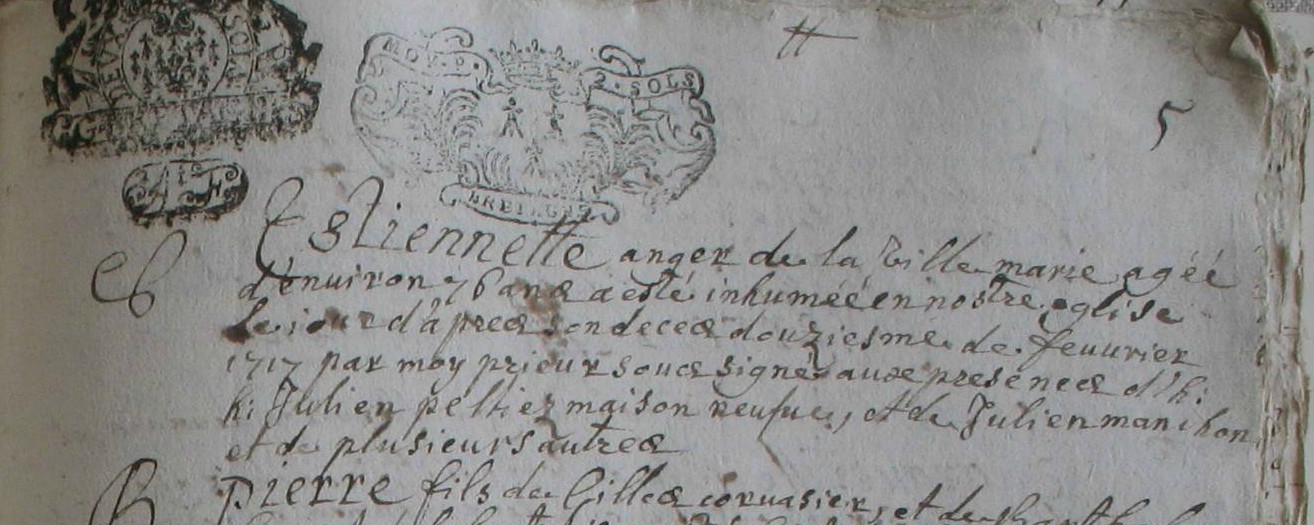 MOY. P. 2. SOLS
BRETAGNE
5
Estiennette anger de la Ville marie agéé
d'enuiron 76 ans a esté inhuméé en nostre eglise
le iour d'apres son deces douziesme de feuurier
1717 par moy prieur sous signé aux presences d'h:
h: Julien peltier maison neufue, et de Julien manchon
et de plusieurs autres
B Pierre fils de Gilles coruasier, et de